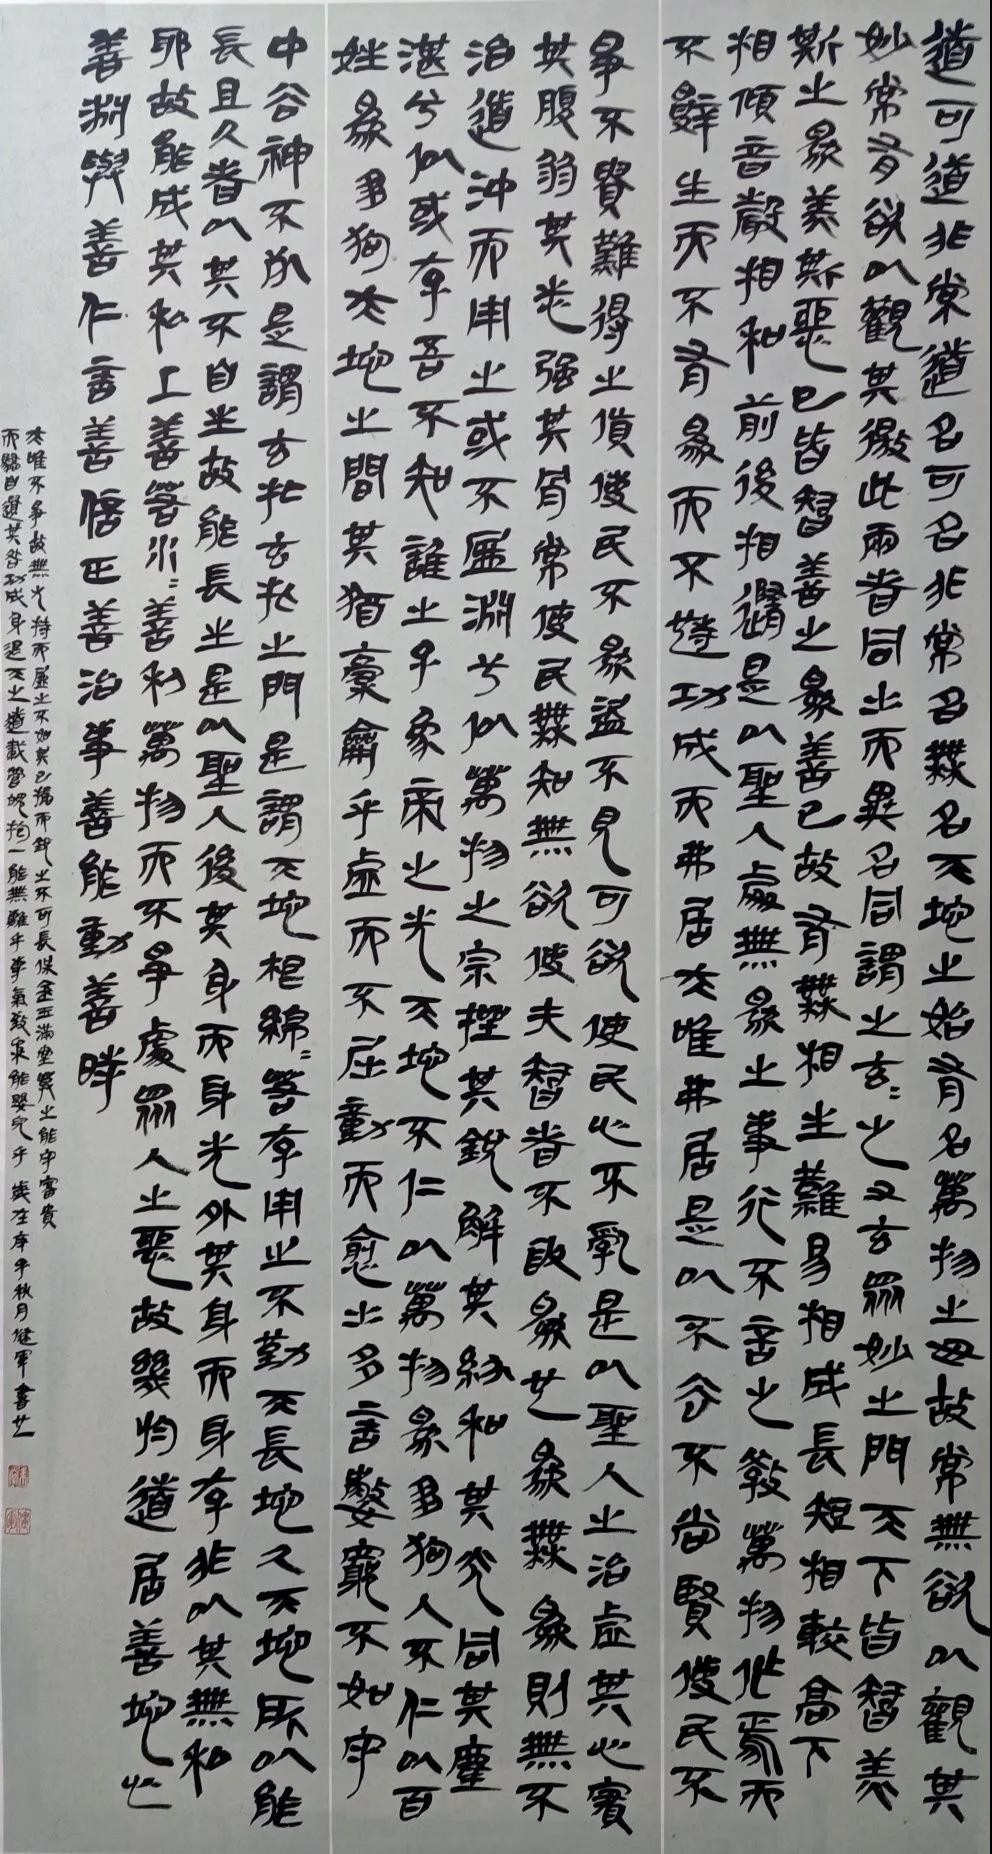 道可道非常道名可名非常名無名天地之始有名萬物之母故常無欲以觀其
妙常有欲以觀其徼此兩者同出而異名同謂之玄〻之又玄眾妙之門天下皆知美
斯之為美斯惡已皆知善之為善已故有無相生難易相成長短相較高下
相傾音聲相和前後相隨是以聖人處無為之事行不言之教萬物作焉而
不辭生而不有為而不恃功成而弗居夫唯弗居是以不去不尚賢使民不
爭不貴難得之貨使民不為盜不見可欲使民心不亂是以聖人之治虛其心實
其腹弱其志强其骨常使民無知無欲使夫智者不敢為也為無為則無不
治道沖而用之或不盈淵兮似萬物之宗挫其銳解其紛和其光同其塵
湛兮似或存吾不知誰之子象帝之先天地不仁以萬物為芻狗人不仁以百
姓為芻狗天地之間其猶橐籥乎虛而不屈動而愈出多言數窮不如守
中谷神不死是謂玄牝玄牝之門是謂天地根綿〻若存用之不勤天長地久天地所以能
長且久者以其不自生故能長生是以聖人後其身而身先外其身而身存非以其無私
耶故能成其私上善若水〻善利萬物而不爭處眾人之惡故幾於道居善地心
善淵與善仁言善信正善治事善能動善時
夫唯不爭故無尤持而盈之不如其已揣而銳之不可長保金玉滿堂莫之能守富貴
而驕自遺其咎功成身退天之道載營魄抱一能無離乎專氣致柔能嬰兒乎 歲在庚子秋月健軍書也